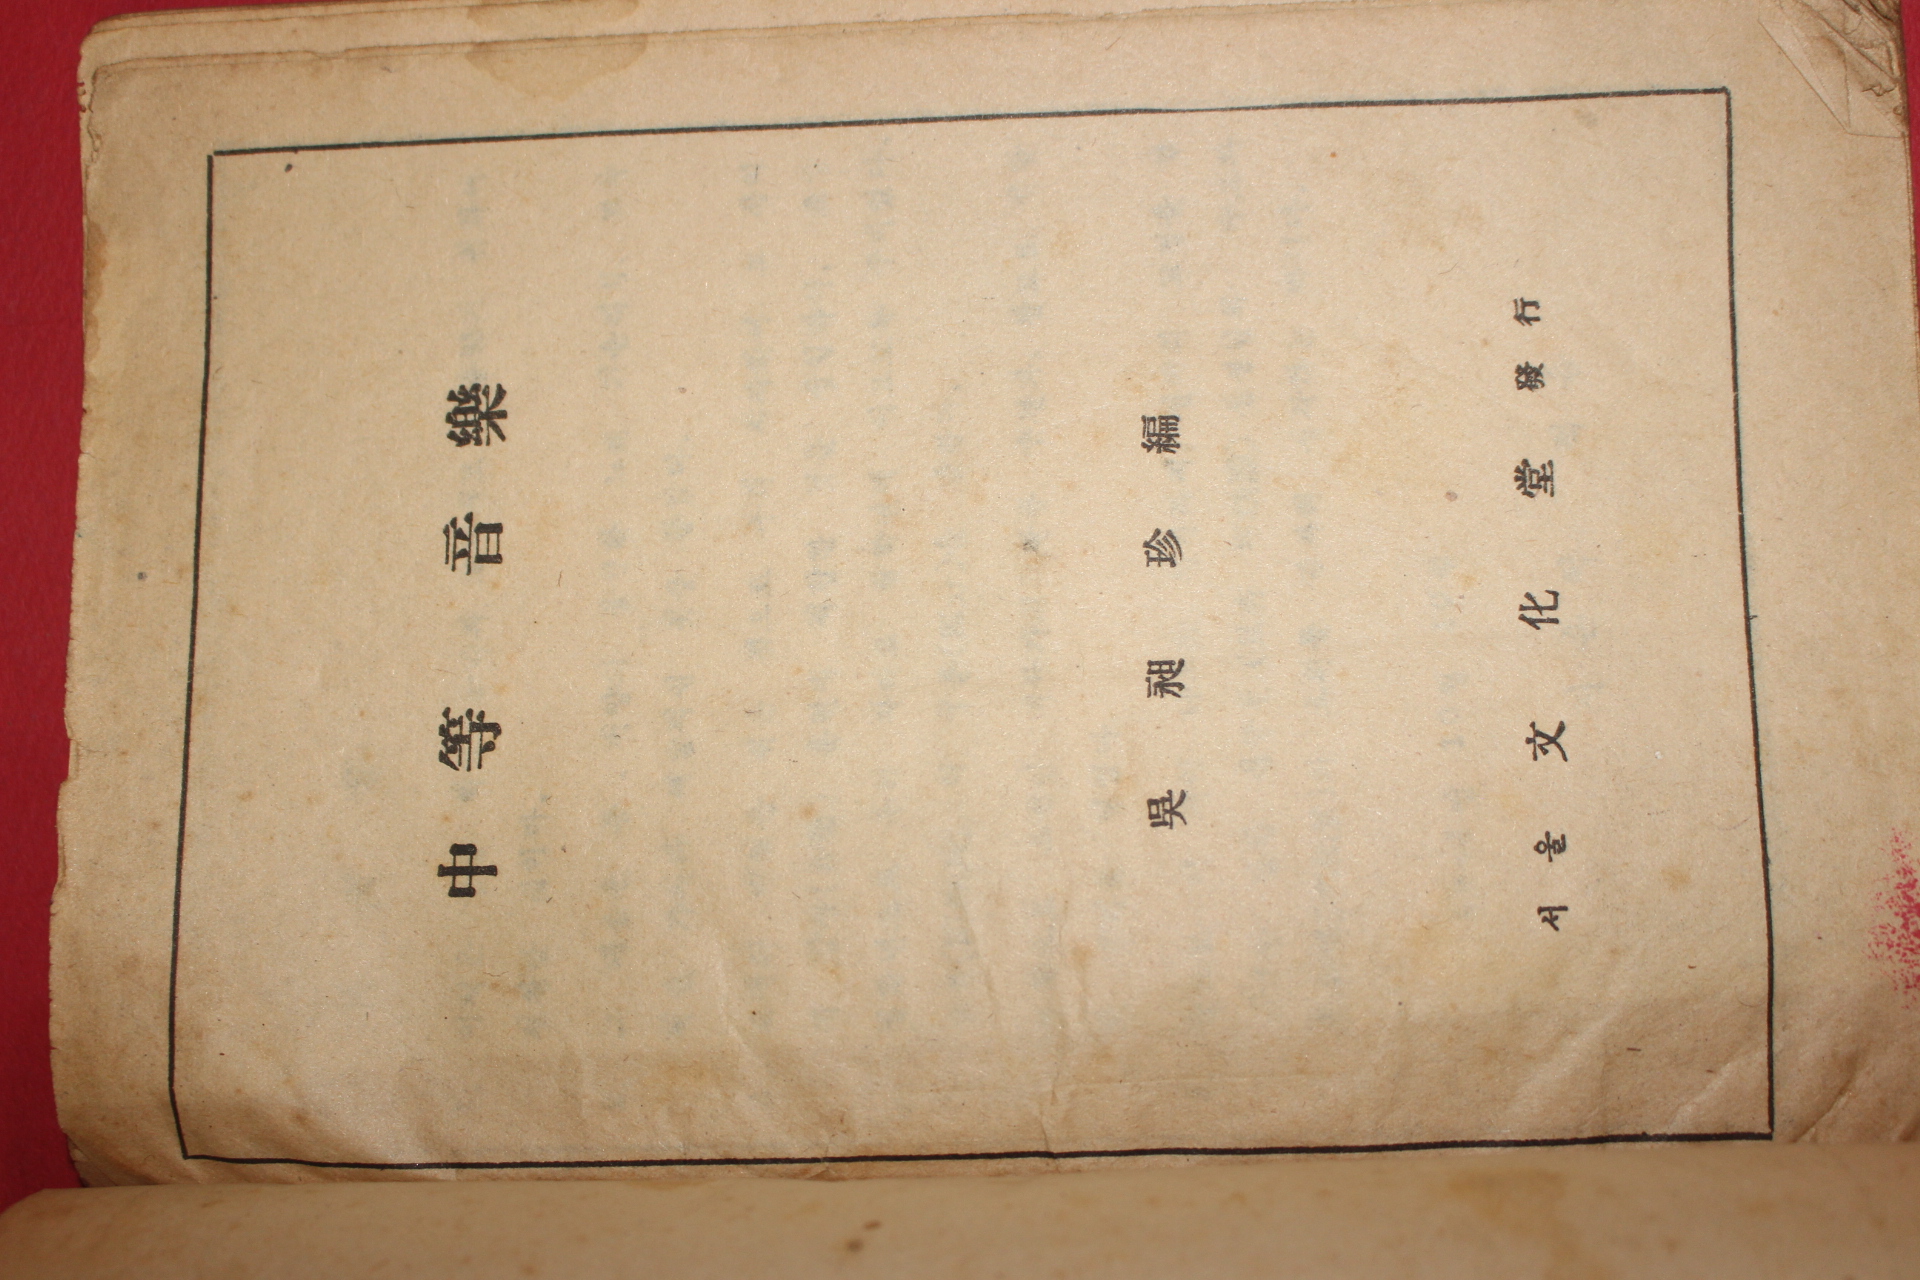 中等音樂
吳昶珍編
서울文化堂發行